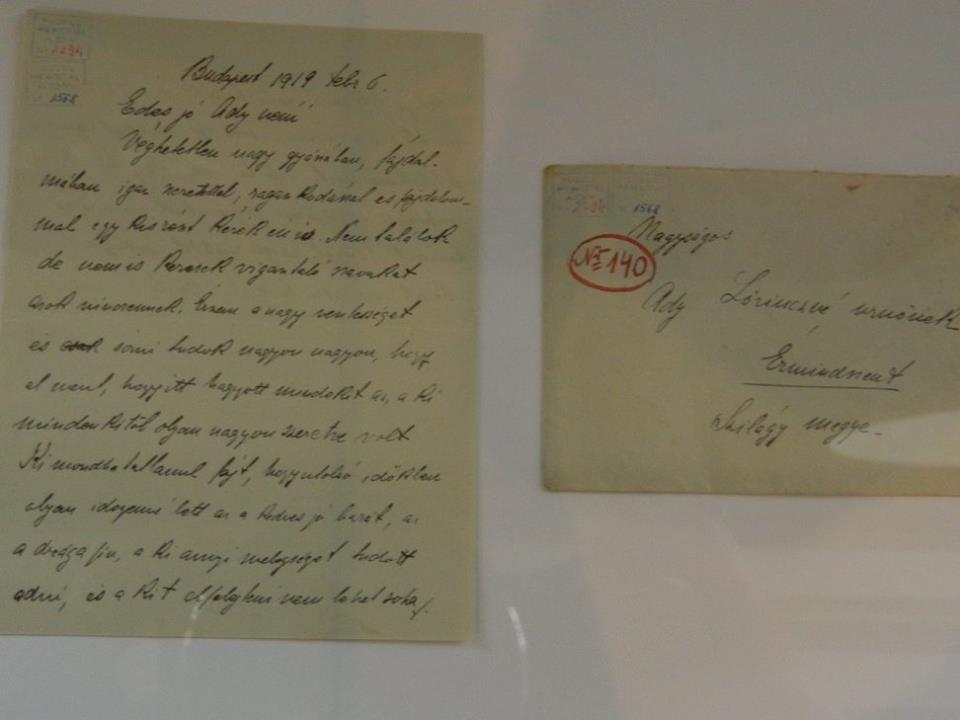 2294
1568
Budapest 1919 febr 6.
Edes jó Ady néni
Véghetetlen nagy gyászában, fájdal-
mában igaz szeretettel, ragaszkodással és fájdalom-
mal egy kis részt kérek én is. Nem találok
de nem is keresek vigasztaló szavakat
azok nincsennek. Érzem a nagy veszteséget
és csak sírni tudok nagyon nagyon, hogy
el ment, hogy itt hagyott mindekit az, a ki
mindenkitől olyan nagyon szeretve volt
Ki mondhatatlanul fájt, hogy utolsó időkben
olyan idegenné lett az a kedves jó barát, az
a drága fiu, a ki annyi melegséget tudott
adni, és a kit elfelejteni nem lehet soha,
2294
1568
Nagyságos
No 140
Ady Lőrinczné urnőnek
Érmindszent
Szilágy megye